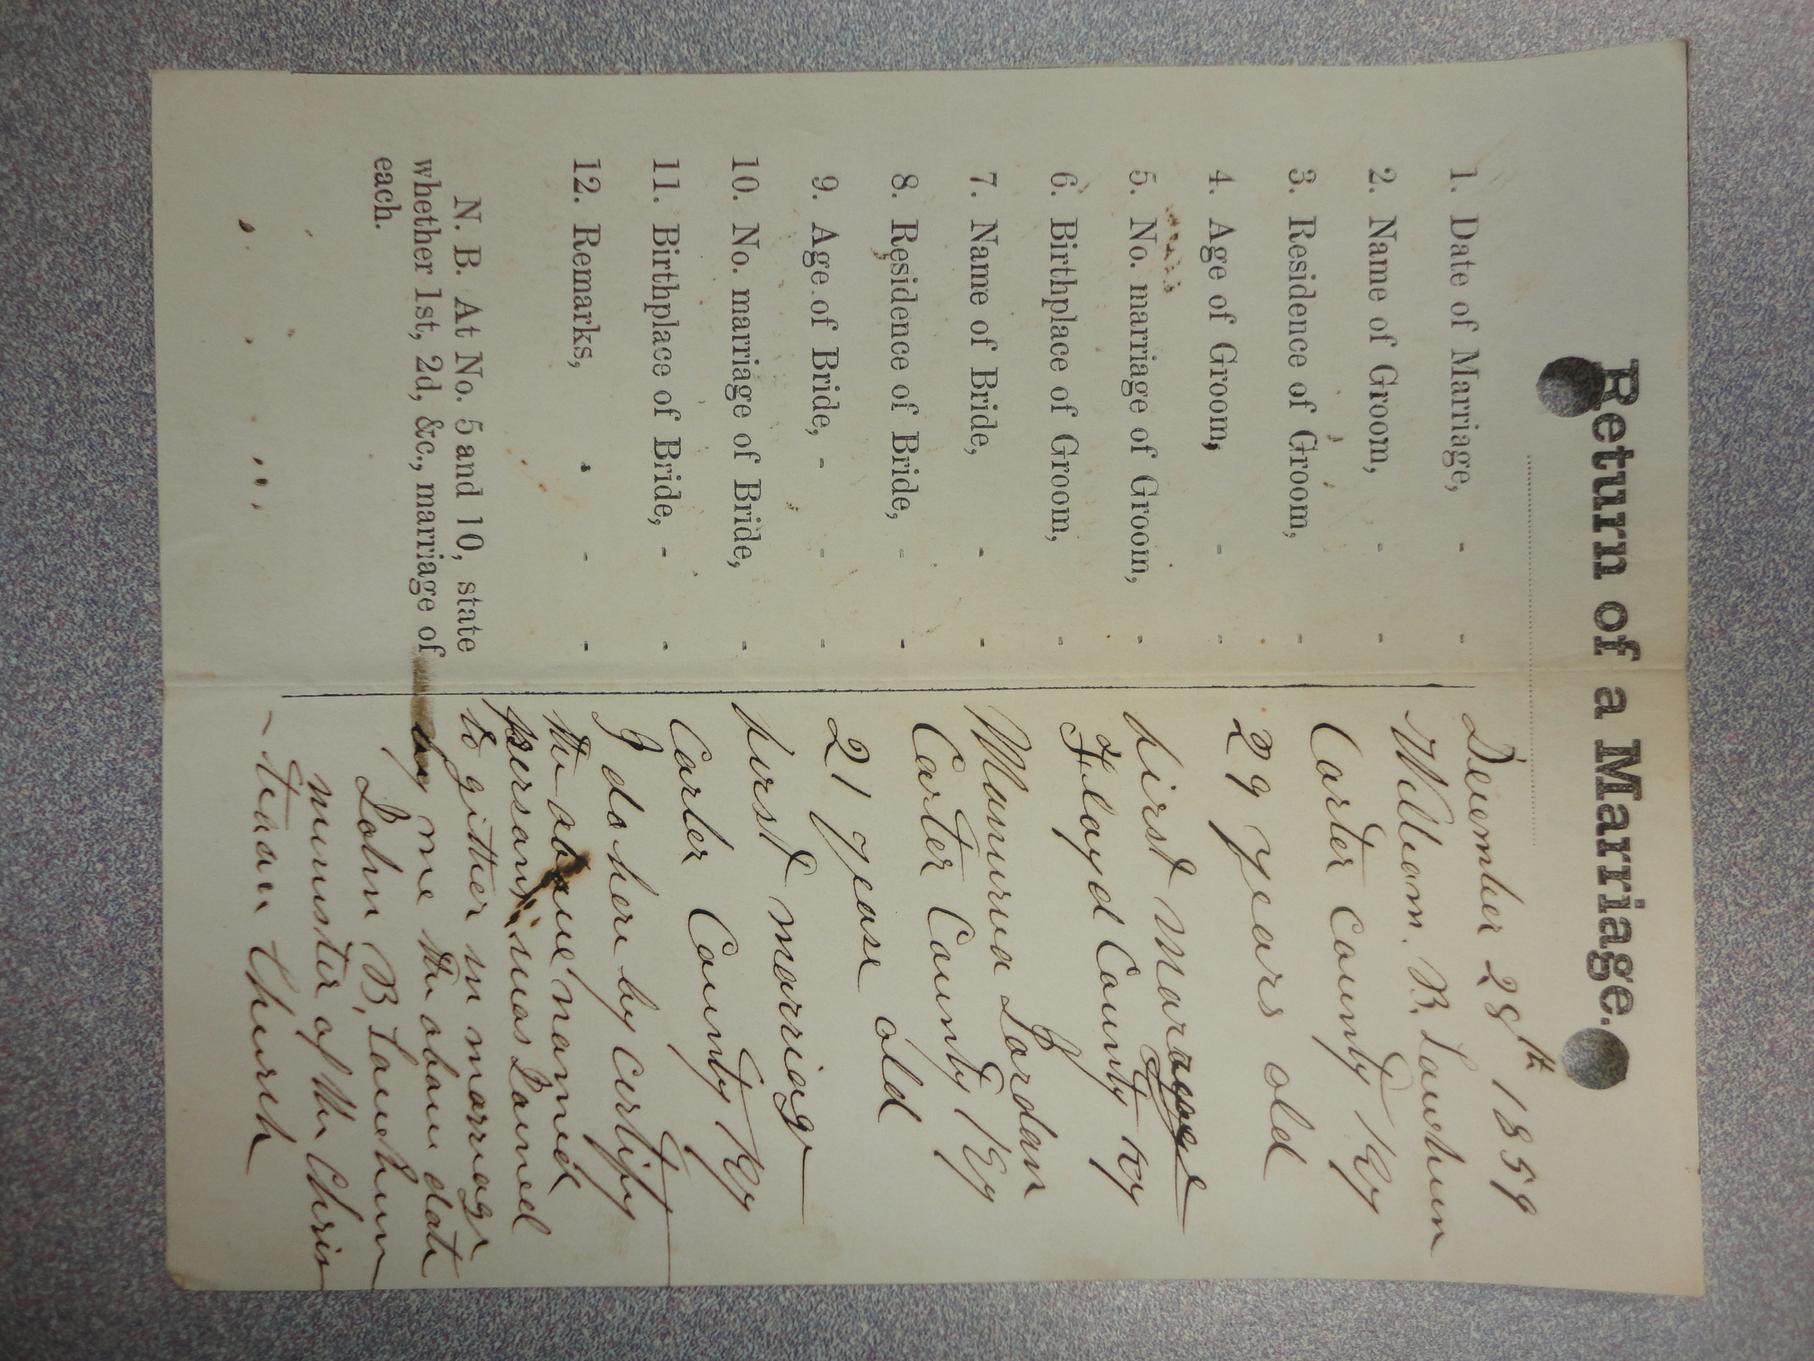 Return of a Marriage.
1. Date of Marriage, - - December 28th 1859
2. Name of Groom, - - William. B. Lawhun
3. Residence of Groom, - Carter County Ky
4. Age of Groom, - - 29 years old
5. No. marriage of Groom, - first
6. Birthplace of Groom, - Floyd County Ky
7. Name of Bride, - - Manurva Jordan
8. Residence of Bride, - - Carter County Ky
9. Age of Bride, - - - 21 year old
10. No. marriage of Bride, - first marriage
11. Birthplace of Bride, - - Carter County Ky
12. Remarks, - - - I do here by certify
the above named
persons was Joined
N. B. At No. 5 and 10, state to gitther in marriage
whether 1st, 2d, &c., marriage of by me the above date
each. John B. Lawhun
minister of the Chris
-tian Church